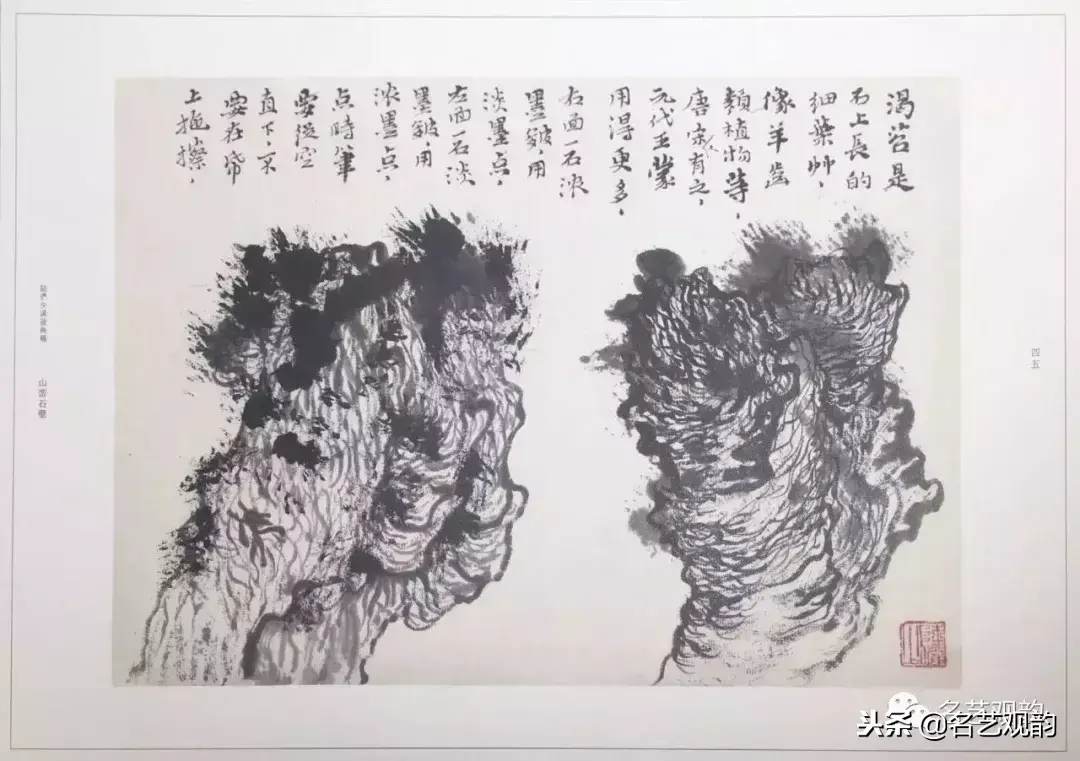 渴苔是
石上長的
细葉艸，
像羊齒
類植物等，
唐宋人有之，
元代王蒙
用得更多，
右面一石浓
墨皴，用
淡墨点，
左面一石淡
墨皴，用
浓墨点，
点時筆
要從空
直下，不
要在帋
上拖擦，
四五
陸儼少課徒画稿
山峦石壁
名艺观韵
头条@名艺观韵